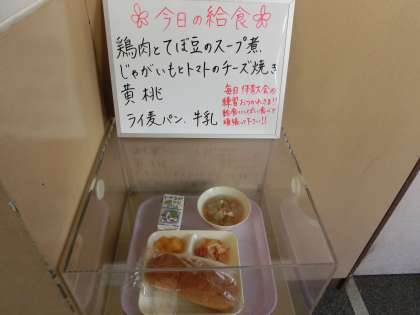 今日の給食
鶏肉とてぼ豆のスープ煮
じゃがいもとトマトのチーズ焼き
黄桃
ライ麦パン、牛乳
毎日体育大会の
練習おつかれさま!!
給食いっぱい食べて
頑張って下さい!!